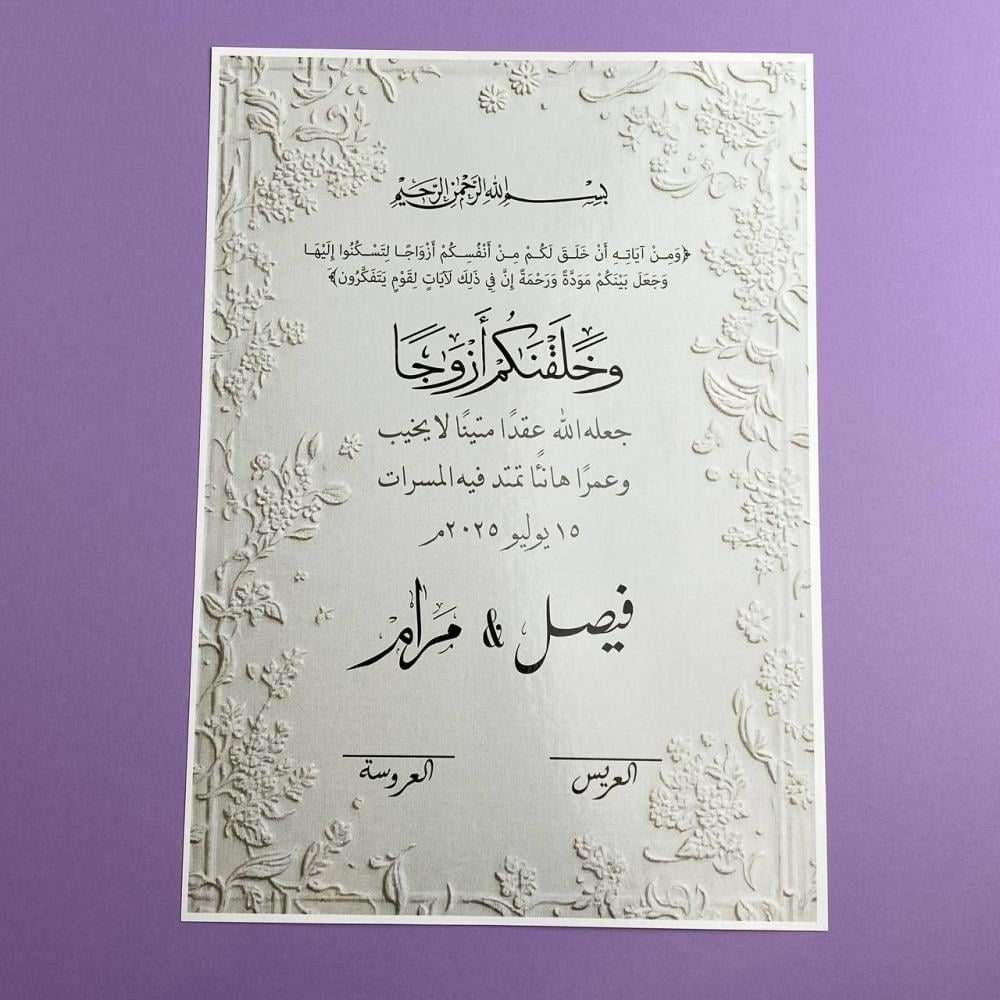 بِسْمِ اللهِ الرَّحْمٰنِ الرَّحِيْمِ
﴿وَمِنْ آيَاتِهِ أَنْ خَلَقَ لَكُمْ مِنْ أَنْفُسِكُمْ أَزْوَاجًا لِتَسْكُنُوا إِلَيْهَا
وَجَعَلَ بَيْنَكُمْ مَوَدَّةً وَرَحْمَةً إِنَّ فِي ذَلِكَ لَآيَاتٍ لِقَوْمٍ يَتَفَكَّرُون﴾
وَخَلَقْنَاكُمْ أَزْوَاجًا
جعله الله عقدًا متينًا لا يخيب
وعمرًا هانئًا تمتد فيه المسرات
١٥ يوليو ٢٠٢٥م
فيصل & مرام
العريس العروسة